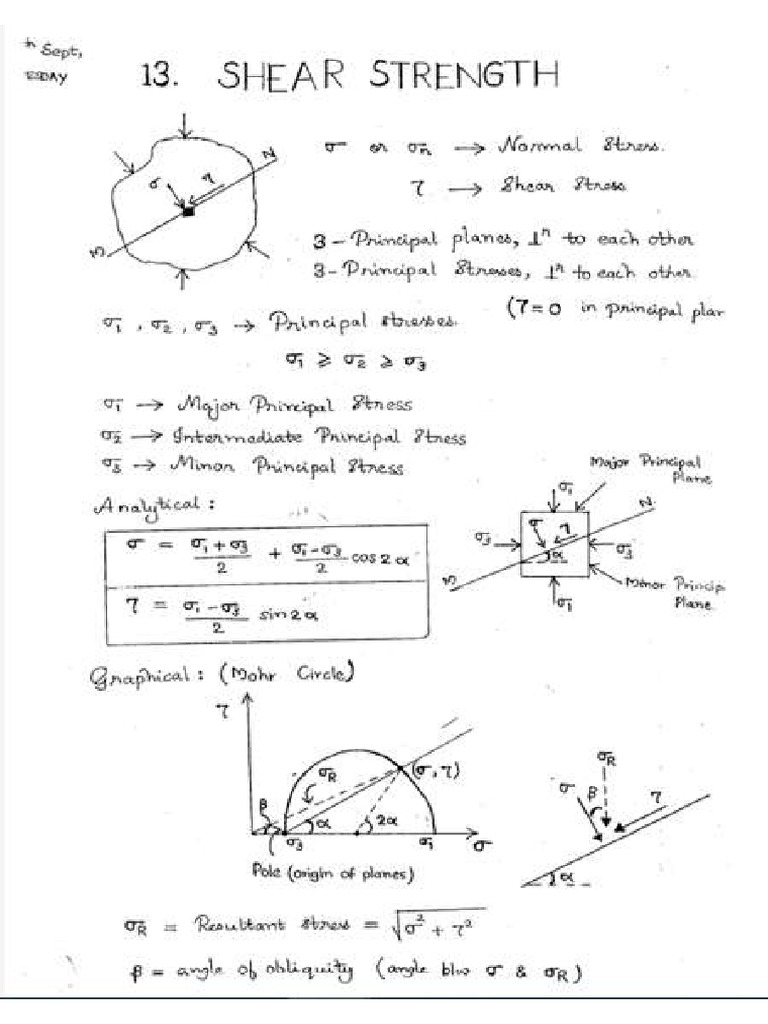 th Sept,
ESDAY
13. SHEAR STRENGTH
σ or σn → Normal Stress.
τ → Shear Stress
3 - Principal planes, ⊥r to each other
3 - Principal Stresses, ⊥r to each other.
(τ = 0 in principal plan
σ1, σ2, σ3 → Principal stresses.
σ1 ⩾ σ2 ⩾ σ3
σ1 → Major Principal Stress
σ2 → Intermediate Principal Stress
σ3 → Minor Principal Stress
N
σ
τ
S
Analytical:
σ = (σ1 + σ3)/2 + (σ1 - σ3)/2 cos 2α
τ = (σ1 - σ3)/2 sin 2α
Major Principal
Plane
σ1
N
σ
τ
σ3
σ3
α
S
Minor Princip
Plane
σ1
Graphical: (Mohr Circle)
τ
σR
(σ, τ)
β
α
2α
σ3
σ1
σ
Pole (origin of planes)
σR
σ
β
τ
α
σR = Resultant stress = √(σ² + τ²)
β = angle of obliquity (angle b/w σ & σR)